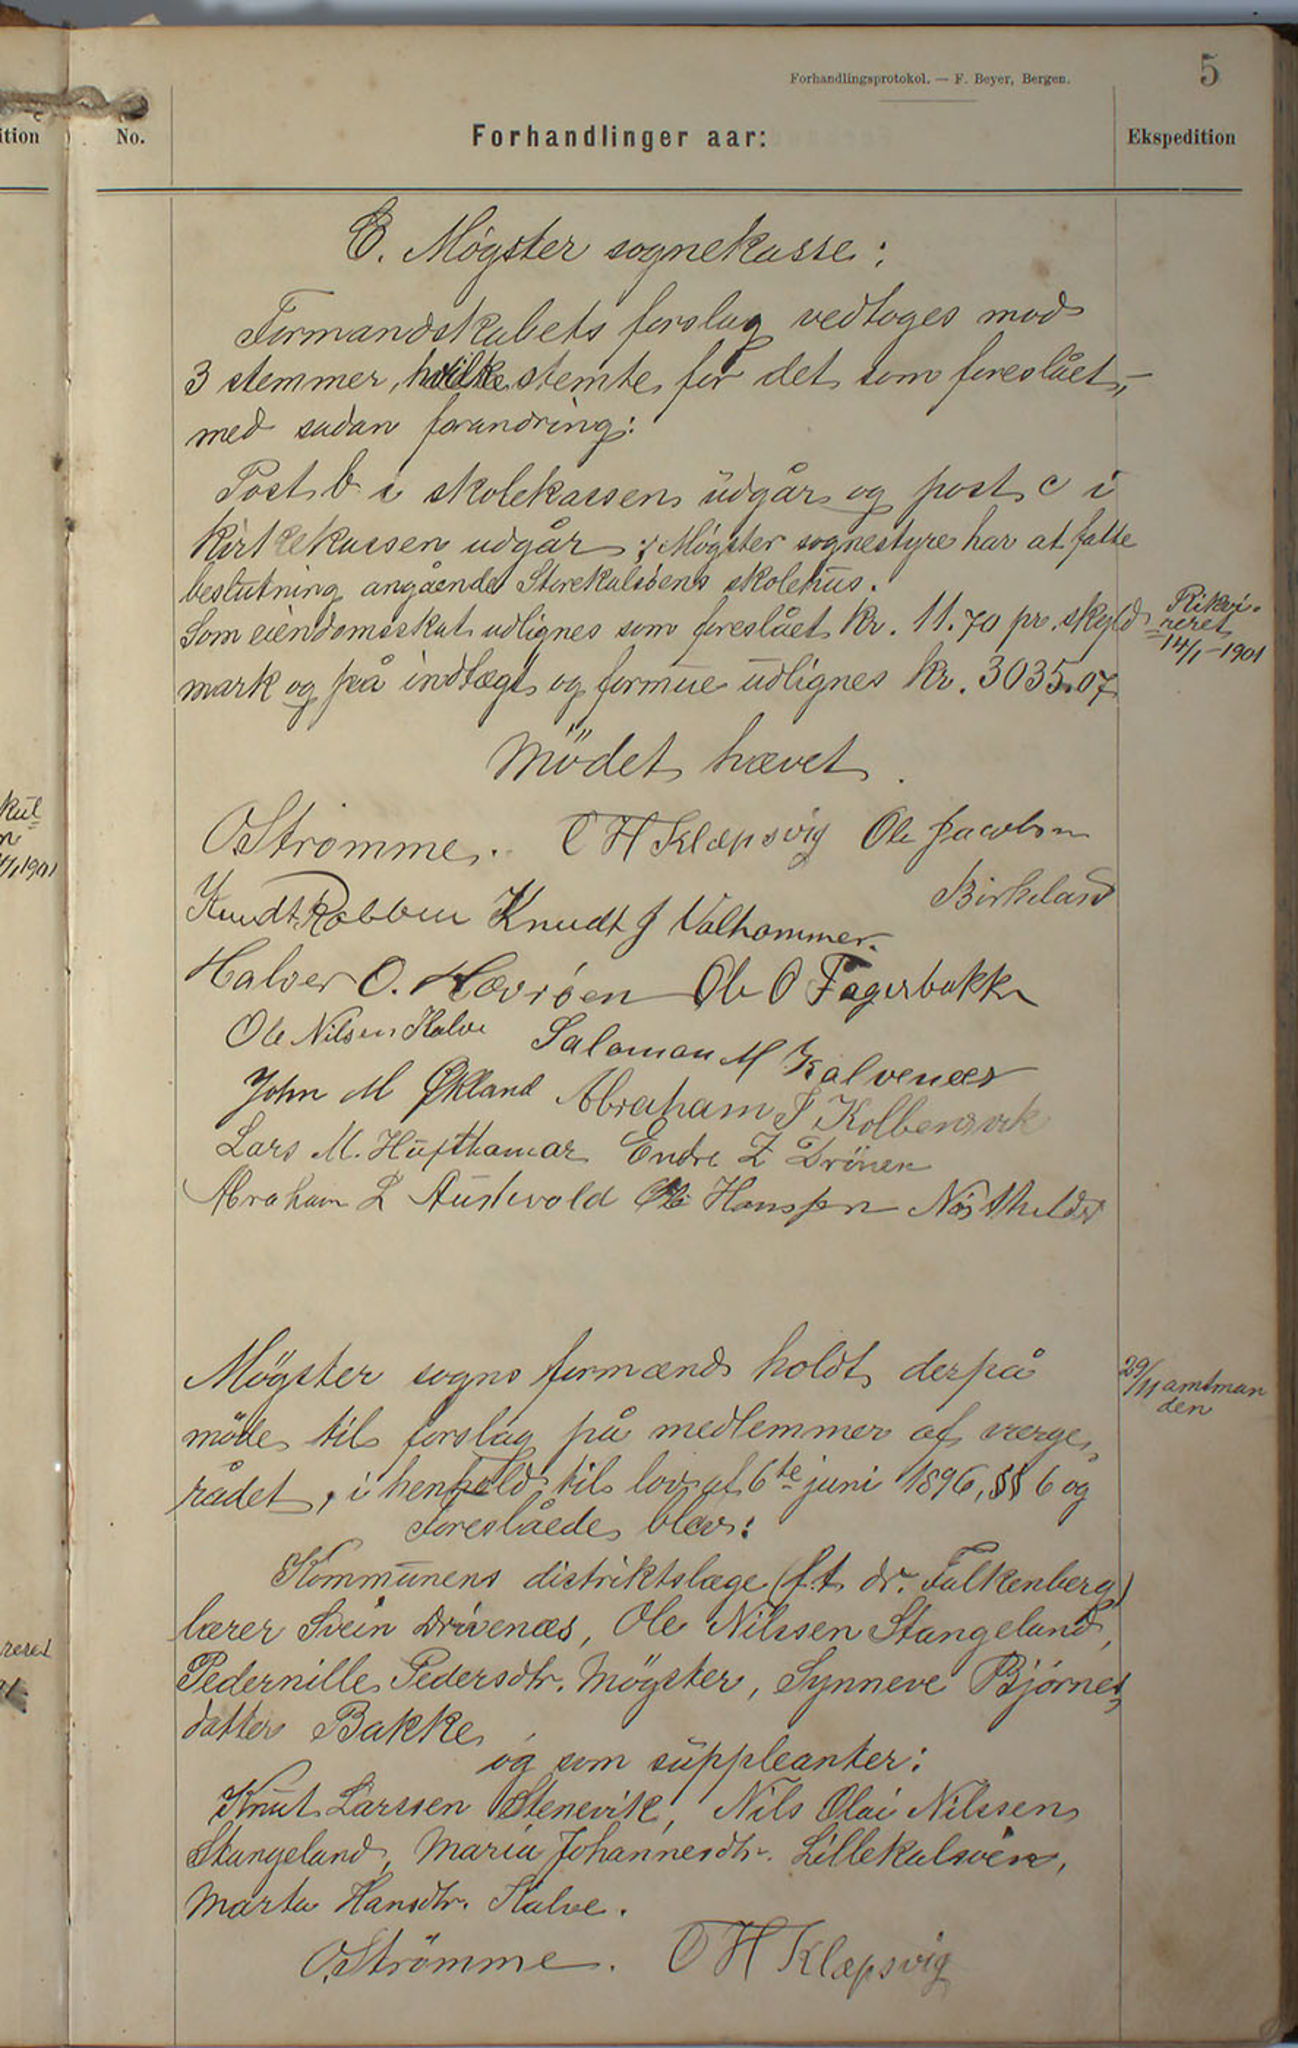 Forhandlingsprotokol. — F. Beyer, Bergen.
5
ition
No.
Forhandlinger aar:
Ekspedition
E. Møgster sognekasse:
Formandskabets forslag vedtoges mod
3 stemmer, hvilke stemte for det som foreslået, –
med sadan forandring:
Post b i skolekassen udgår og post c i
kirkekassen udgår : Møgster sognestyre har at fatte
beslutning angående Storekalsöens skolehus.
Som eiendomsskat udlignes som foreslået kr. 11.70 pr. skyld
Rikvi-
reret
14/1-1901
mark og på indtægt og formue udlignes kr. 3035.07
Mödet hævet.
O Strømme. O H Klæpsvig Ole Jacobsen
Birkeland
Knudt Robben Knudt J Valhammer.
Halver O. Hævröen Ole O Fagerbakke
Ole Nilsen Kalve Salamon M Kalvenæs
John M Økland Abraham J Kolbensvik
Lars M. Hufthamar Endre Z Drönen
Abraham L Austevold Ole Hanssen
Mögster sogns formænd holdt derpå
29/11 amtman
den
möde til forslag på medlemmer af værge,
rådet, i henhold til lov af 6te juni 1896, §§ 6 og
foreslåede blev:
Kommunens distriktslæge (f.t. dr. Falkenberg)
lærer Svein Drivenæs, Ole Nilssen Stangeland,
Pedernille Pedersdtr. Mögster, Synneve Bjørnes,
datter Bakke
og som suppleanter:
Knut Larssen Stenevik, Nils Olai Nilssen
Stangeland, Maria Johannesdtr. Lillekalsöen,
Marta Hansdtr. Kalve.
O Strömme. O H Klæpsvig